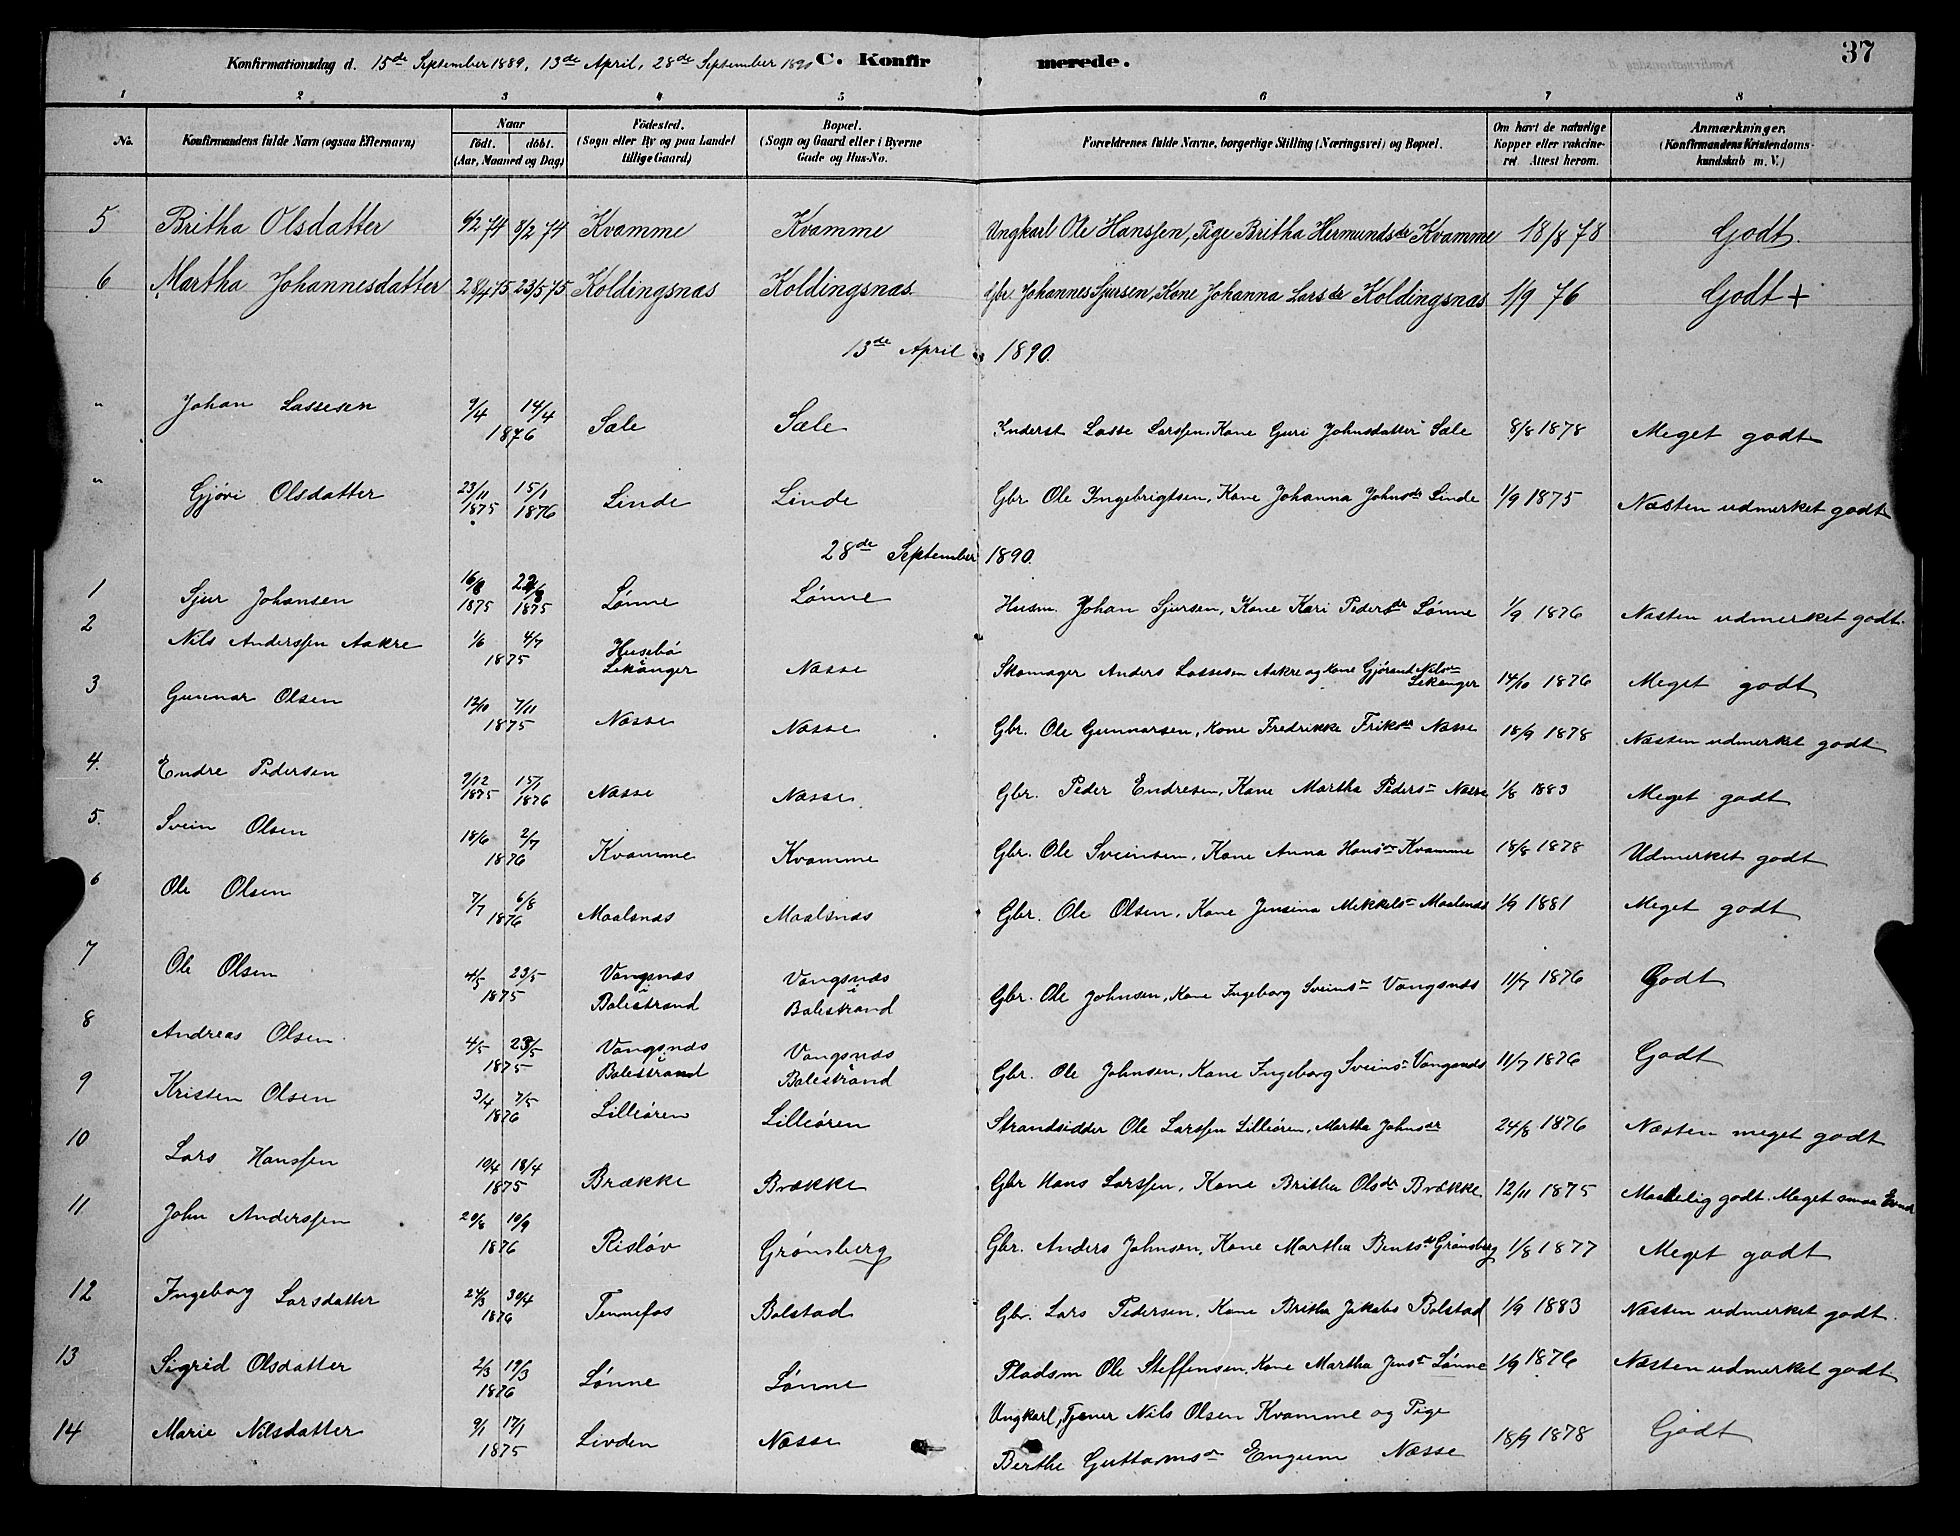 37
Konfirmationsdag d. 15de September 1889, 13de April, 28de September 1890 C. Konfirmerede.
1 2 3 4 5 6 7 8
No. Konfirmandens fulde Navn (ogsaa Efternavn) Naar födt. döbt. (Aar, Maaned og Dag) Födested. (Sogn eller By og paa Landet tillige Gaard) Bopæl. (Sogn og Gaard eller i Byerne Gade og Hus-No. Forældrenes fulde Navne, borgerlige Stilling (Næringsvei) og Bopæl. Om havt de naturlige Kopper eller vakcineret. Attest herom. Anmærkninger. (Konfirmandens Kristendomskundskab m. V.)
5 Britha Olsdatter 6/2 74 8/2 74 Kvamme Kvamme Ungkarl Ole Hanssen, Pige Britha Hermundsdr Kvamme 18/8 78 Godt.
6 Martha Johannesdatter 28/4 75 23/5 75 Koldingsnas Koldingsnas. Gbr Johannes Sjursen, Kone Johanna Larsdr Koldingsnas 1/9 76 Godt +
13de April 1890.
" Johan Lassesen 9/4 14/4 1876 Sæle Sæle Inderst Lasse Larssen, Kone Guri Johnsdatter Sæle 8/8 1878 Meget godt
" Gjøri Olsdatter 23/11 1875 15/1 1876 Linde Linde Gbr Ole Ingebrigtsen, Kone Johanna Johnsdr Linde 1/9 1875 Næsten udmerket godt
28de September 1890.
1 Sjur Johansen 16/8 1875 22/8 1875 Lønne Lønne Husm. Johan Sjursen, Kone Kari Pedersdr Lønne 1/9 1876 Næsten udmerket godt.
2 Nils Anderssen Aakre 1/6 4/7 1875 Husebø Lekanger Næsse Skomager Anders Lassesen Aakre og Kone Gjørand Nilsdr Lekanger 14/10 1876 Meget godt
3 Gunnar Olsen 12/10 7/11 1875 Næsse Næsse Gbr. Ole Gunnarsen, Kone Fredrikke Friksdr Næsse 18/9 1878 Næsten udmerket godt
4. Endre Pedersen 9/12 1875 15/1 1876 Næsse Næsse. Gbr. Peder Endresen, Kone Martha Peders Næsse 1/8 1883 Meget godt
5. Svein Olsen 18/6 2/7 1876 Kvamme Kvamme Gbr. Ole Sveinsen, Kone Anna Hansdr Kvamme 18/8 1878 Udmerket godt
6 Ole Olsen 7/7 6/8 1876 Maalsnæs Maalsnæs Gbr. Ole Olsen, Kone Jensina Mekkels Maalsnæs 1/9 1881 Meget godt
7 Ole Olsen 4/5 23/5 1875 Vangsnæs Balestrand Vangsnæs Balestrand Gbr. Ole Johnsen, Kone Ingeborg Sveins Vangsnæs 11/7 1876 Godt
8 Andreas Olsen. 4/5 23/5 1875 Vangsnæs Balestrand Vangsnæs Balestrand Gbr. Ole Johnsen, Kone Ingeborg Sveins Vangsnæs 11/7 1876 Godt
9 Kristen Olsen 3/4 7/5 1876 Lilleören Lilleören Strandsidder Ole Larssen Lilleören, Martha Johnsdr 24/8 1876 Næsten meget godt
10 Lars Hanssen 10/4 18/4 1875 Brække Brække Gbr Hans Larssen, Kone Britha Olsdr Brække 12/11 1875 Maadelig godt. Meget smaa Evner
11 John Anderssen 20/8 10/9 1876 Risløv Grønsberg Gbr. Anders Johnsen, Kone Martha Bentsdr Grønsberg 1/8 1877 Meget godt
12 Ingeborg Larsdatter 24/3 30/4 1876 Tennefos Bolstad Gbr. Lars Pedersen, Kone Britha Jakobs Bolstad 1/9 1883 Næsten udmerket godt.
13 Sigrid Olsdatter 2/3 19/3 1876 Lønne Lønne Pladsm Ole Steffensen, Kone Martha Jens Lønne 1/9 1876 Næsten udmerket godt
14 Marie Nilsdatter 9/1 17/1 1875 Livden Næsse Ungkarl, Tjener Nils Olsen Kvamme og Pige
Berthe Guttormsdr Engum Næsse 18/9 1878 Godt